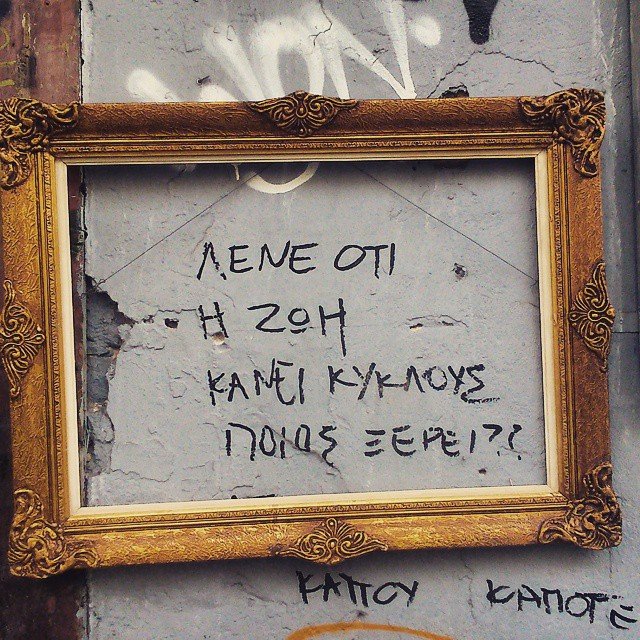 WON.
ΛΕΝΕ ΟΤΙ
Η ΖΩΗ
ΚΑΝΕΙ ΚΥΚΛΟΥΣ
ΠΟΙΟΣ ΞΕΡΕΙ??
ΚΑΠΟΥ ΚΑΠΟΤΕ